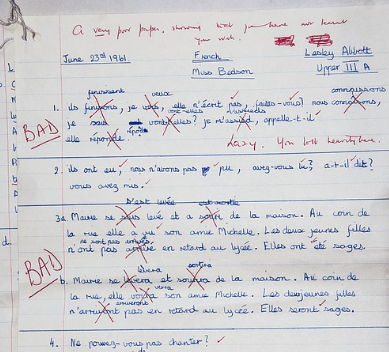 A very poor paper, showing that you have not learnt
your work.
June 23rd 1961 French Lesley Abbott
Miss Bedson Upper III A
finissent veux connaissons
1. ils finissons, je vois, elle n'écrit pas, faites-vous? nous connaîtrons,
je suis vont-elles? je m'assied, appelle-t-il
elle réponde
BAD
Lazy. You lost
2. ils ont eu, nous n'avons pas pu, avez-vous lu?, a-t-il dit?
vous avez mis.
s'est levée est sortie
3a. Mauve se suis levé et a sorti de la maison. Au coin de
la rue elle a vu son amie Michelle. Les deux jeunes filles
ne sont pas arrivées
n'ont pas arrivé en retard au lycée. Elles ont été sages.
BAD
lèvera sortira
b. Mauve se lèvera et sortira de la maison. Au coin de
verra
la rue, elle voira son amie Michelle. Les deux jeunes filles
arriveront
n'arriveront pas en retard au lycée. Elles seront sages.
4. Ne pouvez-vous pas chanter?